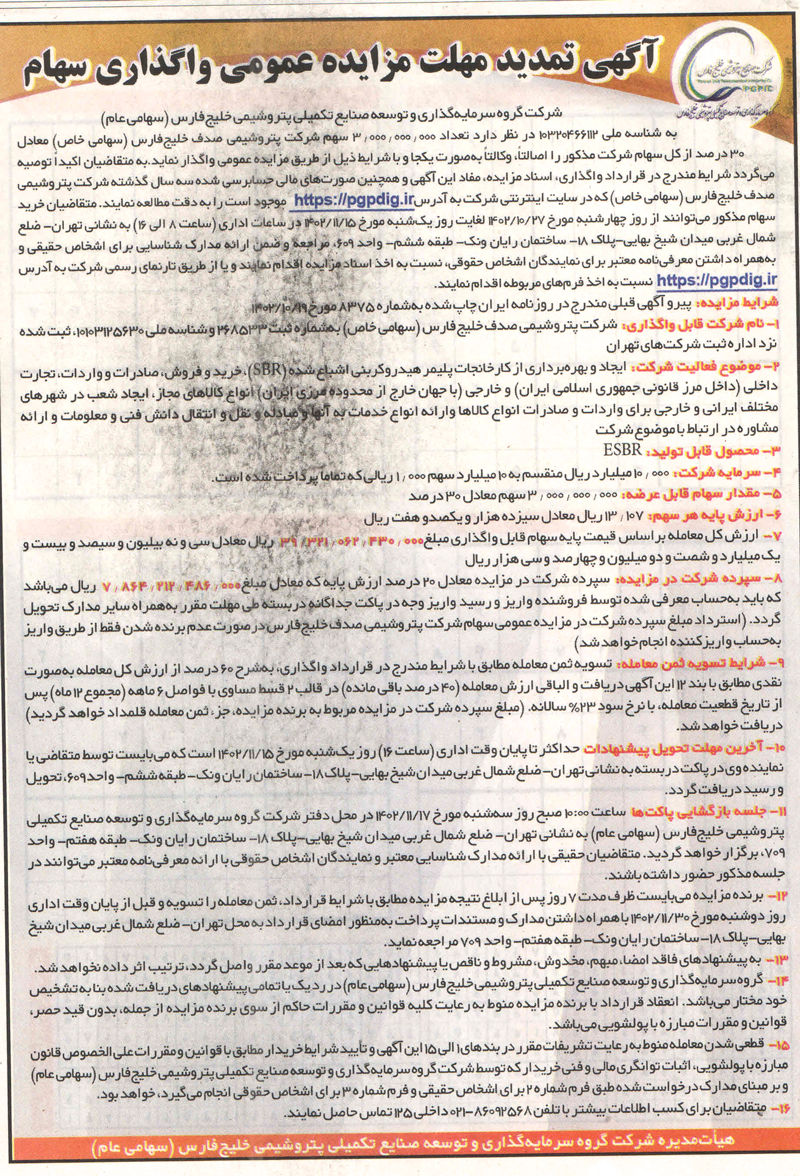 آگهی تمدید مهلت مزایده عمومی واگذاری سهام
PGPIC
شرکت گروه سرمایه‌گذاری و توسعه صنایع تکمیلی پتروشیمی خلیج فارس (سهامی عام)
به شناسه ملی ۱۰۳۲۰۴۶۶۱۱۲ در نظر دارد تعداد ۳٫۰۰۰٫۰۰۰٫۰۰۰ سهم شرکت پتروشیمی صدف خلیج فارس (سهامی خاص) معادل
۳۰ درصد از کل سهام شرکت مذکور را اصالتاً، وکالتاً به‌صورت یکجا و با شرایط ذیل از طریق مزایده عمومی واگذار نماید. به متقاضیان اکیدا توصیه
می‌گردد شرایط مندرج در قرارداد واگذاری، اسناد مزایده، مفاد این آگهی و همچنین صورت‌های مالی حسابرسی شده سه سال گذشته شرکت پتروشیمی
صدف خلیج فارس (سهامی خاص) که در سایت اینترنتی شرکت به آدرس https://pgpdig.ir موجود است را به دقت مطالعه نمایند. متقاضیان خرید
سهام مذکور می‌توانند از روز چهارشنبه مورخ ۱۴۰۲/۱۰/۲۷ لغایت روز یکشنبه مورخ ۱۴۰۲/۱۱/۱۵ در ساعات اداری (ساعت ۸ الی ۱۶) به نشانی تهران- ضلع
شمال غربی میدان شیخ بهایی-پلاک ۱۸- ساختمان رایان ونک- طبقه ششم- واحد ۶۰۹، مراجعه و ضمن ارائه مدارک شناسایی برای اشخاص حقیقی و
به‌همراه داشتن معرفی‌نامه معتبر برای نمایندگان اشخاص حقوقی، نسبت به اخذ اسناد مزایده اقدام نمایند و یا از طریق تارنمای رسمی شرکت به آدرس
https://pgpdig.ir نسبت به اخذ فرم‌های مربوطه اقدام نمایند.
شرایط مزایده: پیرو آگهی قبلی مندرج در روزنامه ایران چاپ شده به‌شماره ۸۳۷۵ مورخ ۱۴۰۲/۱۰/۱۹
۱- نام شرکت قابل واگذاری: شرکت پتروشیمی صدف خلیج فارس (سهامی خاص) به‌شماره ثبت ۲۶۸۵۳۳ و شناسه ملی ۱۰۱۰۳۱۲۵۶۳۰، ثبت شده
نزد اداره ثبت شرکت‌های تهران
۲- موضوع فعالیت شرکت: ایجاد و بهره‌برداری از کارخانجات پلیمر هیدروکربنی اشباع شده (SBR)، خرید و فروش، صادرات و واردات، تجارت
داخلی (داخل مرز قانونی جمهوری اسلامی ایران) و خارجی (با جهان خارج از محدوده مرزی ایران) انواع کالاهای مجاز، ایجاد شعب در شهرهای
مختلف ایرانی و خارجی برای واردات و صادرات انواع کالاها وارائه انواع خدمات به آنها و مبادله و نقل و انتقال دانش فنی و معلومات و ارائه
مشاوره در ارتباط با موضوع شرکت
۳- محصول قابل تولید: ESBR
۴- سرمایه شرکت: ۱۰٫۰۰۰ میلیارد ریال منقسم به ۱۰ میلیارد سهم ۱٫۰۰۰ ریالی که تماما پرداخت شده است.
۵- مقدار سهام قابل عرضه: ۳٫۰۰۰٫۰۰۰٫۰۰۰ سهم معادل ۳۰ درصد
۶- ارزش پایه هر سهم: ۱۳٫۱۰۷ ریال معادل سیزده هزار و یکصد و هفت ریال
۷- ارزش کل معامله براساس قیمت پایه سهام قابل واگذاری مبلغ ۳۹٫۳۲۱٫۰۶۲٫۴۳۰٫۰۰۰ ریال معادل سی و نه بیلیون و سیصد و بیست و
یک میلیارد و شصت و دو میلیون و چهارصد و سی هزار ریال
۸- سپرده شرکت در مزایده: سپرده شرکت در مزایده معادل ۲۰ درصد ارزش پایه که معادل مبلغ ۷٫۸۶۴٫۲۱۲٫۴۸۶٫۰۰۰ ریال می‌باشد
که باید به‌حساب معرفی شده توسط فروشنده واریز و رسید واریز وجه در پاکت جداگانه دربسته طی مهلت مقرر به‌همراه سایر مدارک تحویل
گردد. (استرداد مبلغ سپرده شرکت در مزایده عمومی سهام شرکت پتروشیمی صدف خلیج فارس در صورت عدم برنده شدن فقط از طریق واریز
به‌حساب واریزکننده انجام خواهد شد)
۹- شرایط تسویه ثمن معامله: تسویه ثمن معامله مطابق با شرایط مندرج در قرارداد واگذاری، به‌شرح ۶۰ درصد از ارزش کل معامله به‌صورت
نقدی مطابق با بند ۱۲ این آگهی دریافت و الباقی ارزش معامله (۴۰ درصد باقی مانده) در قالب ۲ قسط مساوی با فواصل ۶ ماهه (مجموع ۱۲ ماه) پس
از تاریخ قطعیت معامله، با نرخ سود ۲۳% سالانه. (مبلغ سپرده شرکت در مزایده مربوط به برنده مزایده، جزء ثمن معامله قلمداد خواهد گردید)
دریافت خواهد شد.
۱۰- آخرین مهلت تحویل پیشنهادات حداکثر تا پایان وقت اداری (ساعت ۱۶) روز یک‌شنبه مورخ ۱۴۰۲/۱۱/۱۵ است که می‌بایست توسط متقاضی یا
نماینده وی در پاکت در بسته به نشانی تهران- ضلع شمال غربی میدان شیخ بهایی- پلاک ۱۸- ساختمان رایان ونک- طبقه ششم- واحد ۶۰۹، تحویل
و رسید دریافت گردد.
۱۱- جلسه بازگشایی پاکت‌ها ساعت ۱۰:۰۰ صبح روز سه‌شنبه مورخ ۱۴۰۲/۱۱/۱۷ در محل دفتر شرکت گروه سرمایه‌گذاری و توسعه صنایع تکمیلی
پتروشیمی خلیج‌فارس (سهامی عام) به نشانی تهران- ضلع شمال غربی میدان شیخ بهایی-پلاک ۱۸- ساختمان رایان ونک- طبقه هفتم- واحد
۷۰۹، برگزار خواهد گردید. متقاضیان حقیقی با ارائه مدارک شناسایی معتبر و نمایندگان اشخاص حقوقی با ارائه معرفی‌نامه معتبر می‌توانند در
جلسه مذکور حضور داشته باشند.
۱۲- برنده مزایده می‌بایست ظرف مدت ۷ روز پس از ابلاغ نتیجه مزایده مطابق با شرایط قرارداد، ثمن معامله را تسویه و قبل از پایان وقت اداری
روز دوشنبه مورخ ۱۴۰۲/۱۱/۳۰ با همراه داشتن مدارک و مستندات پرداخت به‌منظور امضای قرارداد به محل تهران- ضلع شمال غربی میدان شیخ
بهایی-پلاک ۱۸- ساختمان رایان ونک- طبقه هفتم- واحد ۷۰۹ مراجعه نماید.
۱۳- به پیشنهادهای فاقد امضا، مبهم، مخدوش، مشروط و ناقص یا پیشنهادهایی که بعد از موعد مقرر واصل گردد، ترتیب اثر داده نخواهد شد.
۱۴- گروه سرمایه‌گذاری و توسعه صنایع تکمیلی پتروشیمی خلیج فارس (سهامی عام) در رد یک یا تمامی پیشنهادهای دریافت شده بنا به تشخیص
خود مختار می‌باشد. انعقاد قرارداد با برنده مزایده منوط به رعایت کلیه قوانین و مقررات حاکم از سوی برنده مزایده از جمله، بدون قید حصر،
قوانین و مقررات مبارزه با پولشویی می‌باشد.
۱۵- قطعی شدن معامله منوط به رعایت تشریفات مقرر در بندهای ۱ الی ۱۵ این آگهی و تأیید شرایط خریدار مطابق با قوانین و مقررات علی الخصوص قانون
مبارزه با پولشویی، اثبات توانگری مالی و فنی خریدار که توسط شرکت گروه سرمایه‌گذاری و توسعه صنایع تکمیلی پتروشیمی خلیج فارس (سهامی عام)
و بر مبنای مدارک درخواست شده طبق فرم شماره ۲ برای اشخاص حقیقی و فرم شماره ۳ برای اشخاص حقوقی انجام می‌گیرد، خواهد بود.
۱۶- متقاضیان برای کسب اطلاعات بیشتر با تلفن ۸۶۰۹۲۵۶۸-۰۲۱ داخلی ۱۲۵ تماس حاصل نمایند.
هیأت‌مدیره شرکت گروه سرمایه‌گذاری و توسعه صنایع تکمیلی پتروشیمی خلیج فارس (سهامی عام)